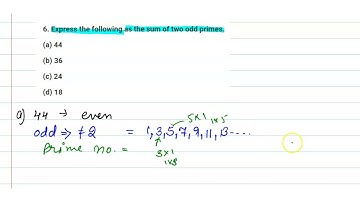 6. Express the following as the sum of two odd primes.
(a) 44
(b) 36
(c) 24
(d) 18
a) 44 → even
5×1 1×5
odd ⇒ ≠2 = 1,3,5,7,9,11,13-....
Prime no. =
3×1
1×3